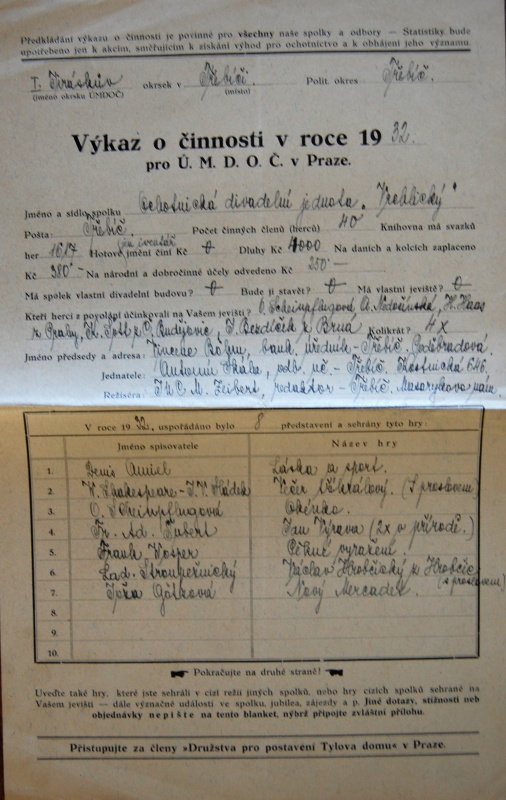 Předkládání výkazu o činnosti je povinné pro všechny naše spolky a odbory — Statistiky bude
upotřebeno jen k akcím, směřujícím k získání výhod pro ochotnictvo a k obhájení jeho významu.
I. Jiráskův okrsek v Třebíči. Polit. okres Třebíč.
(jméno okrsku ÚMDOČ) (místo)
Výkaz o činnosti v roce 1932.
pro Ú. M. D. O. Č. v Praze.
Jméno a sídlo spolku Ochotnická divadelní jednota „Vrchlický"
Pošta: Třebíč. Počet činných členů (herců) 40 Knihovna má svazků
her 1617 Hotové jmění činí Kč 0 Dluhy Kč 4000 Na daních a kolcích zaplaceno
jen inventář
Kč 380·— Na národní a dobročinné účely odvedeno Kč 250·—
Má spolek vlastní divadelní budovu? 0 Bude ji stavět? 0 Má vlastní jeviště? 0
Kteří herci z povolání účinkovali na Vašem jevišti? O. Scheinpflugová, A. Nedošínská, H. Haas
z Prahy, K. z Č. Budějovic, J. Bezdíček z Brna Kolikrát? 4x
Jméno předsedy a adresa: Vincenc Böhm, bank. úředník - Třebíč, Poděbradova.
Jednatele: Antonín Skála, odb. uč. - Třebíč, 646.
Režiséra: M. Zeibert, redaktor - Třebíč, Masarykovo nám.
V roce 1932, uspořádáno bylo 8 představení a sehrány tyto hry:
Jméno spisovatele Název hry
1. Denis Amiel Láska a sport.
2. W. Shakespeare - J. V. Sládek Večer tříkrálový. (S proslovem)
3. O. Scheinpflugová Okénko.
4. Fr. Ad. Šubert Jan Výrava (2x v přírodě.)
5. Frank Vosper Pěkné vyražení.
6. Lad. Stroupežnický Václav Hrobčický z Hrobčic
(s proslovem)
7. Joža Götzová Nový Mercadet.
8.
9.
10.
Pokračujte na druhé straně!
Uveďte také hry, které jste sehráli v cizí režii jiných spolků, nebo hry cizích spolků sehrané na
Vašem jevišti — dále význačné události ve spolku, jubilea, zájezdy a p. Jiné dotazy, stížnosti neb
objednávky nepište na tento blanket, nýbrž připojte zvláštní přílohu.
Přistupujte za členy »Družstva pro postavení Tylova domu« v Praze.